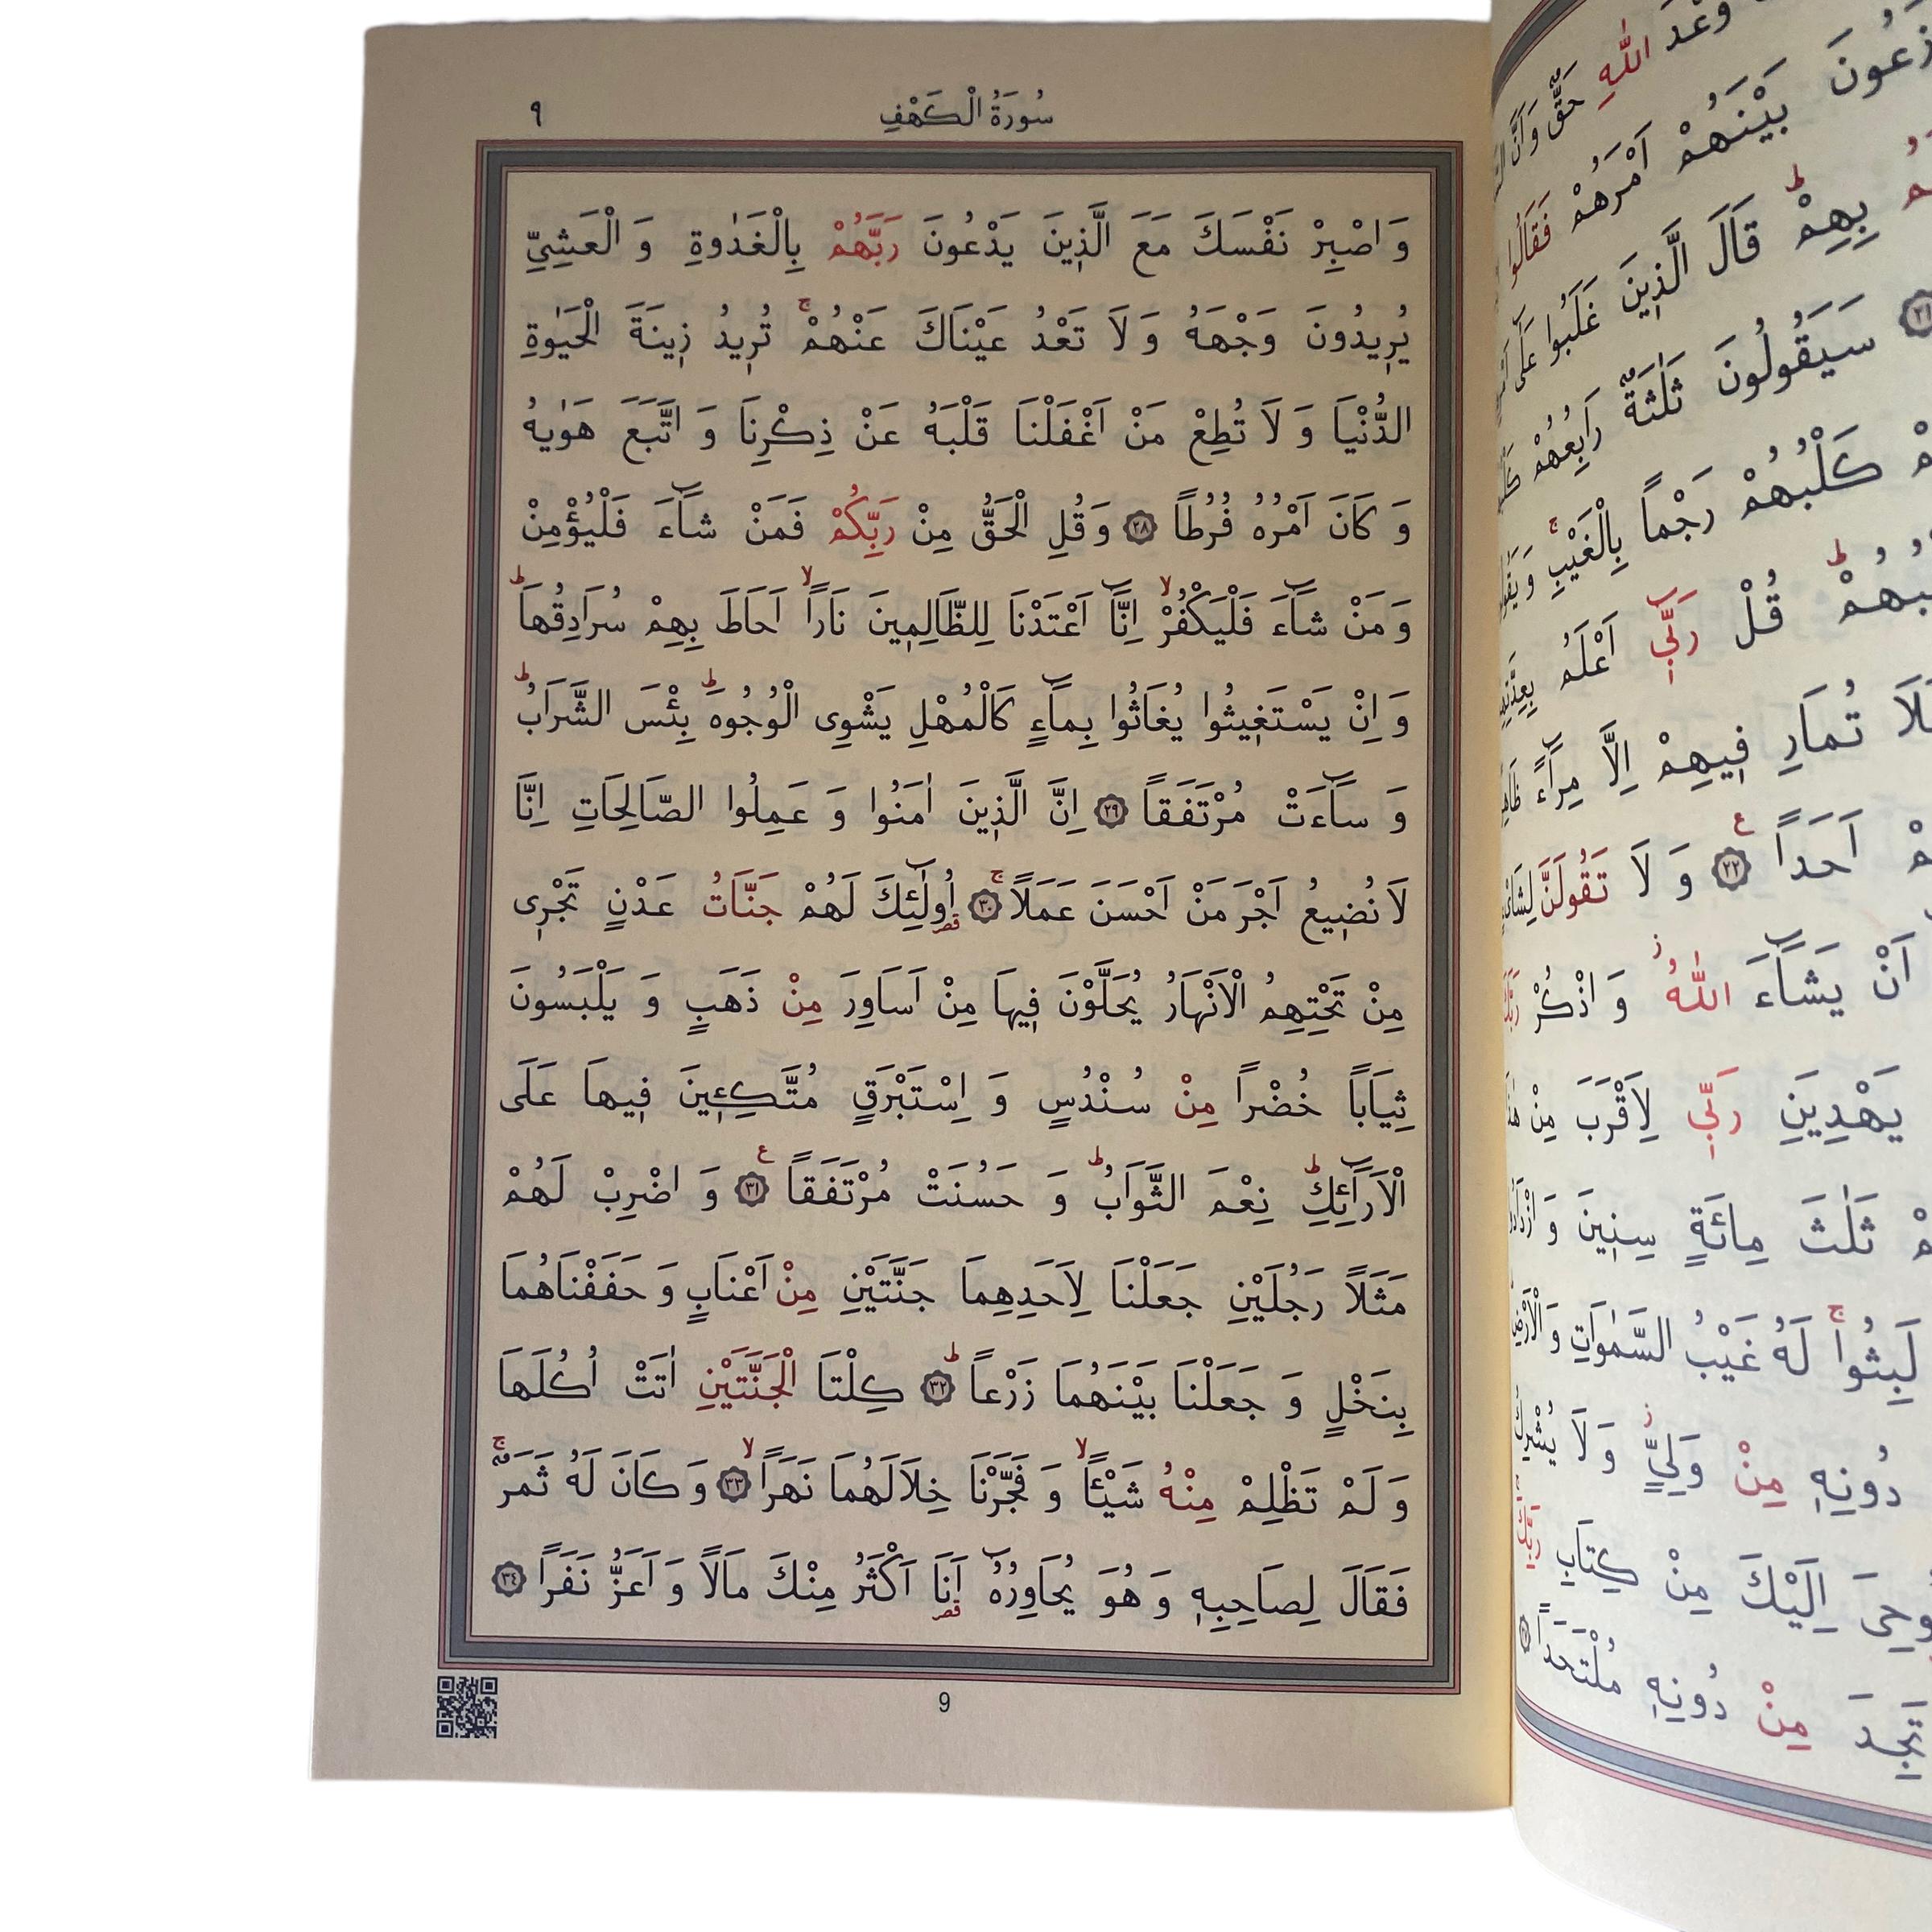 سُورَةُ الْكَهْفِ ٩
وَ اصْبِرْ نَفْسَكَ مَعَ الَّذ۪ينَ يَدْعُونَ رَبَّهُمْ بِالْغَدٰوةِ وَ الْعَشِيِّ
يُر۪يدُونَ وَجْهَهُ وَ لَا تَعْدُ عَيْنَاكَ عَنْهُمْۚ تُر۪يدُ ز۪ينَةَ الْحَيٰوةِ
الدُّنْيَا وَ لَا تُطِعْ مَنْ اَغْفَلْنَا قَلْبَهُ عَنْ ذِكْرِنَا وَ اتَّبَعَ هَوٰيهُ
وَ كَانَ اَمْرُهُ فُرُطاً ﴿٢٨﴾ وَ قُلِ الْحَقُّ مِنْ رَبِّكُمْ فَمَنْ شَٓاءَ فَلْيُؤْمِنْ
وَ مَنْ شَٓاءَ فَلْيَكْفُرْۙ اِنَّٓا اَعْتَدْنَا لِلظَّالِم۪ينَ نَاراًۙ اَحَاطَ بِهِمْ سُرَادِقُهَاۜ
وَ اِنْ يَسْتَغ۪يثُوا يُغَاثُوا بِمَٓاءٍ كَالْمُهْلِ يَشْوِى الْوُجُوهَۜ بِئْسَ الشَّرَابُۜ
وَ سَٓاءَتْ مُرْتَفَقاً ﴿٢٩﴾ اِنَّ الَّذ۪ينَ اٰمَنُوا وَ عَمِلُوا الصَّالِحَاتِ اِنَّا
لَا نُض۪يعُ اَجْرَ مَنْ اَحْسَنَ عَمَلاًۚ ﴿٣٠﴾ اُو۬لٰٓئِكَ لَهُمْ جَنَّاتُ عَدْنٍ تَجْر۪ى
مِنْ تَحْتِهِمُ الْاَنْهَارُ يُحَلَّوْنَ ف۪يهَا مِنْ اَسَاوِرَ مِنْ ذَهَبٍ وَ يَلْبَسُونَ
ثِيَاباً خُضْراً مِنْ سُنْدُسٍ وَ اِسْتَبْرَقٍ مُتَّكِـ۪ٔينَ ف۪يهَا عَلَى
الْاَرَٓائِكِۜ نِعْمَ الثَّوَابُۜ وَ حَسُنَتْ مُرْتَفَقاً ع ﴿٣١﴾ وَ اضْرِبْ لَهُمْ
مَثَلاً رَجُلَيْنِ جَعَلْنَا لِاَحَدِهِمَا جَنَّتَيْنِ مِنْ اَعْنَابٍ وَ حَفَفْنَاهُمَا
بِنَخْلٍ وَ جَعَلْنَا بَيْنَهُمَا زَرْعاًۜ ﴿٣٢﴾ كِلْتَا الْجَنَّتَيْنِ اٰتَتْ اُكُلَهَا
وَ لَمْ تَظْلِمْ مِنْهُ شَيْـٔاًۙ وَ فَجَّرْنَا خِلَالَهُمَا نَهَراًۙ ﴿٣٣﴾ وَ كَانَ لَهُ ثَمَرٌۚ
فَقَالَ لِصَاحِبِه۪ وَ هُوَ يُحَاوِرُهُٓ اَنَا۬ اَكْثَرُ مِنْكَ مَالاً وَ اَعَزُّ نَفَراً ﴿٣٤﴾
9
وَعْدَ اللّٰهِ حَقٌّ وَ اَنَّ
بَيْنَهُمْ اَمْرَهُمْ فَقَالُوا
بِهِمْۜ قَالَ الَّذ۪ينَ غَلَبُوا عَلٰٓى
سَيَقُولُونَ ثَلٰثَةٌ رَابِعُهُمْ
كَلْبُهُمْ رَجْماً بِالْغَيْبِۚ
قُلْ رَبّ۪ٓي اَعْلَمُ بِعِدَّتِهِمْ
تُمَارِ ف۪يهِمْ اِلَّا مِرَٓاءً
اَحَداً ع ﴿٢٢﴾ وَ لَا تَقُولَنَّ
اَنْ يَشَٓاءَ اللّٰهُۘ وَ اذْكُرْ
يَهْدِيَنِ رَبّ۪ي لِاَقْرَبَ مِنْ
ثَلٰثَ مِائَةٍ سِن۪ينَ وَ
لَبِثُواۚ لَهُ غَيْبُ السَّمٰوَاتِ وَ الْاَرْضِ
دُونِه۪ مِنْ وَلِيٍّۘ وَ لَا يُشْرِكُ
اِلَيْكَ مِنْ كِتَابِ رَبِّكَ
تَجِدَ مِنْ دُونِه۪ مُلْتَحَداً